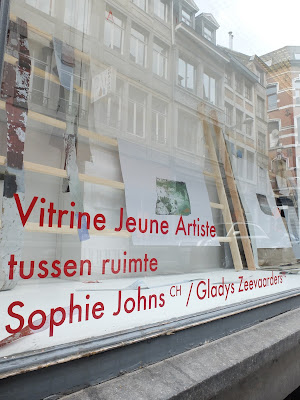 Vitrine Jeune Artiste
tussen ruimte
Sophie Johns CH / Gladys Zeevaarders